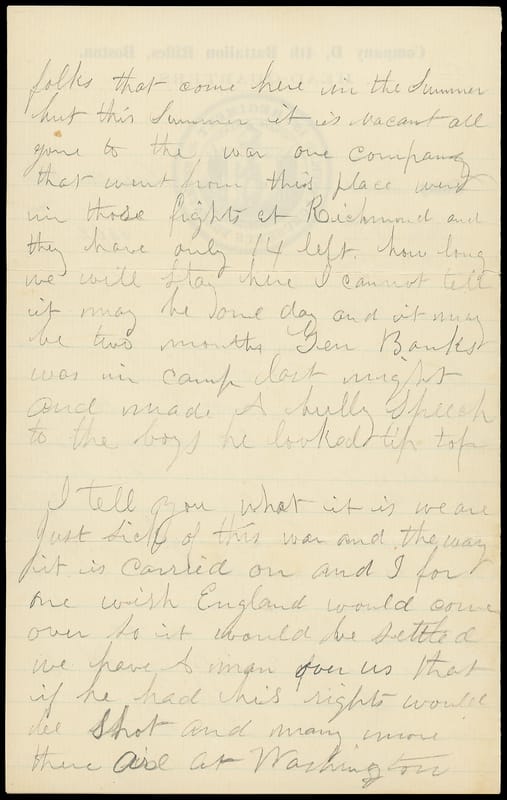 Company D, 4th Battalion Rifles, Boston.
HEAD QUARTERS
folks that come here in the Summer
but this Summer it is vacant all
gone to the war one company
that went from this place were
in those fights at Richmond and
they have only 14 left. how long
we will stay here I cannot tell
it may be one day and it may
be two months Gen Banks
was in camp last night
and made A bully Speech
to the boys he looked tip top
I tell you what it is we are
Just sick of this war and the way
it is carried on and I for
one wish England would come
over so it would be settled
we have A man over us that
if he had his rights would
be Shot and many more
there are at Washington